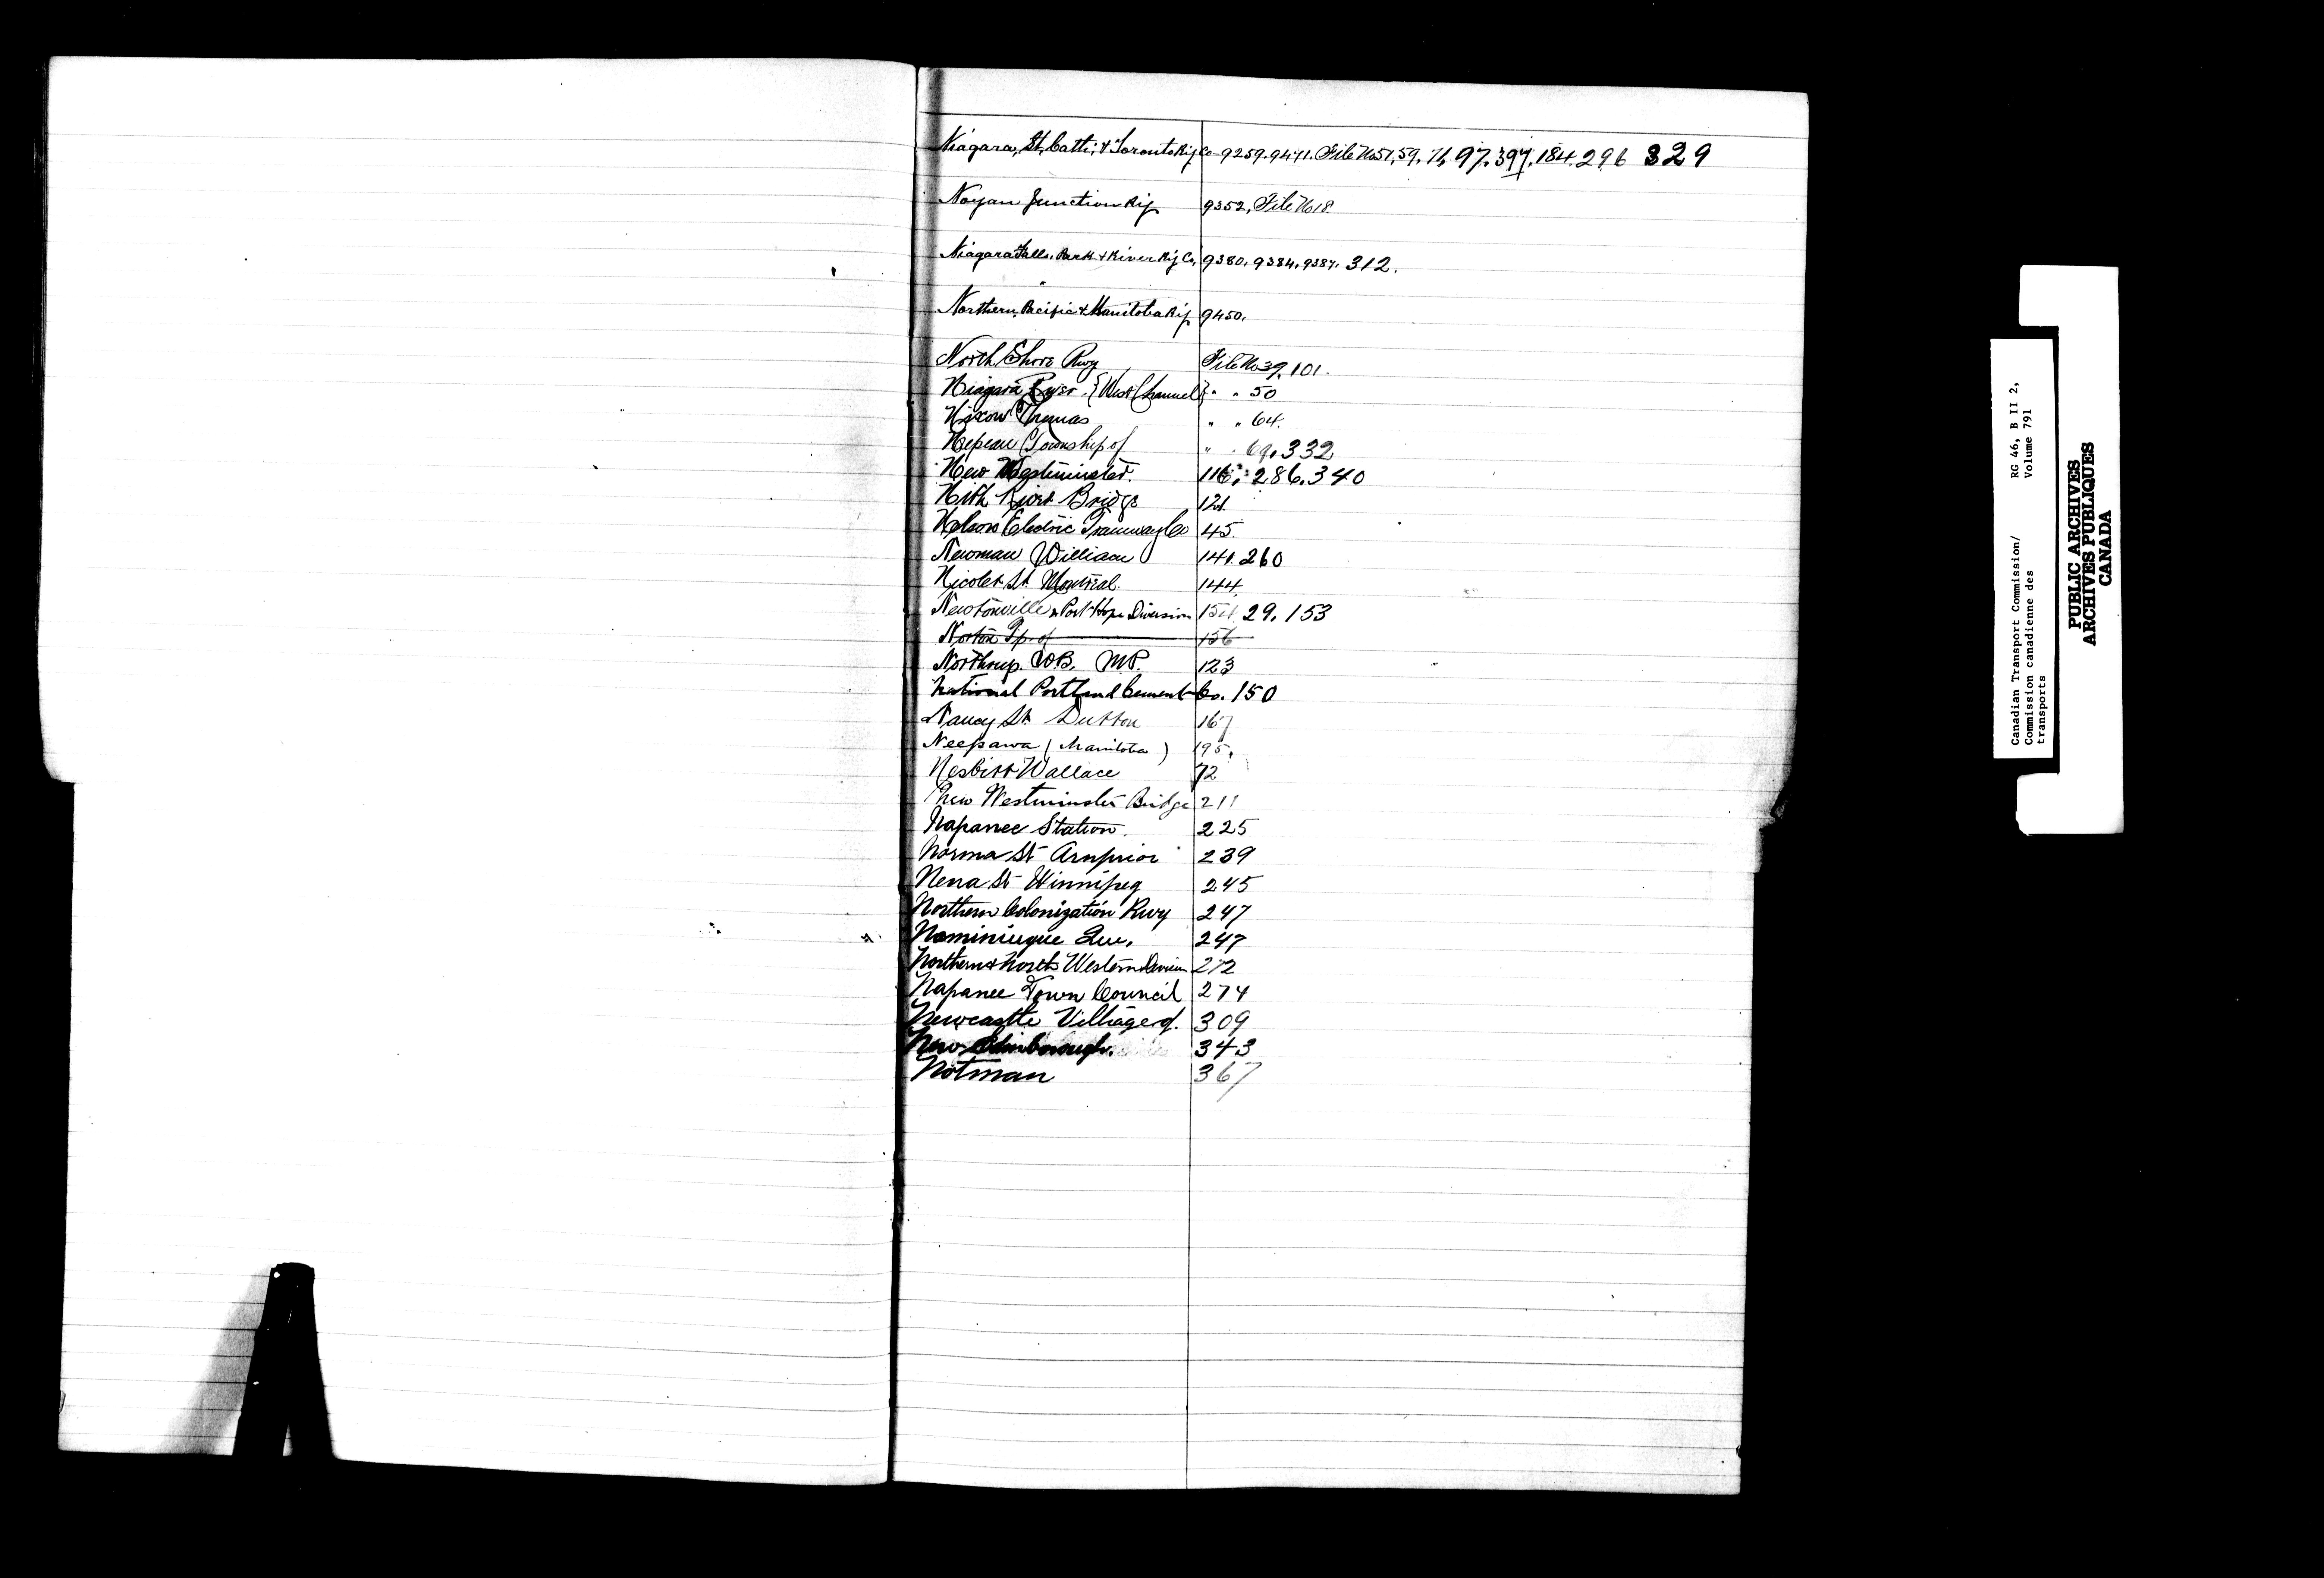 Niagara, St. Cath; & Toronto Ry Co - 9259. 9471. File No 57, 59, 71, 97. 397. 184. 296 329
Noyan Junction Ry 9352, File No 18.
Niagara Falls. Park & River Ry Co. 9380. 9384. 9387. 312.
Northern, Pacific & Manitoba Ry 9450.
North Shore Rwy File No 39. 101.
Niagara River. {West Channel} " " 50
Nixon Thomas " " 64.
Nepean Township of " " 69. 332
New Westminster. 116. 286. 340
Nith River Bridge 121.
Nelson Electric Tramway Co 45.
Newman William 141. 260
Nicolet St. Montreal. 144.
Newtonville & Port Hope Diversion 154. 29. 153
Norton Tp. of 156
Northrup. W.B. M.P. 123
National Portland Cement Co. 150
Nancy St. Dutton 167
Neepawa (Manitoba) 195.
Nesbitt Wallace 72
New Westminster Bridge 211
Napanee Station. 225
Norma St Arnprior 239
Nena St Winnipeg 245
Northern Colonization Rwy 247
Nominingue Que. 247
Northern & North Western Division 272
Napanee Town Council 274
Newcastle Village of. 309
New Edinborough. 343
Notman 367
Canadian Transport Commission/ RG 46, B II 2,
Commission canadienne des Volume 791
transports
PUBLIC ARCHIVES
ARCHIVES PUBLIQUES
CANADA